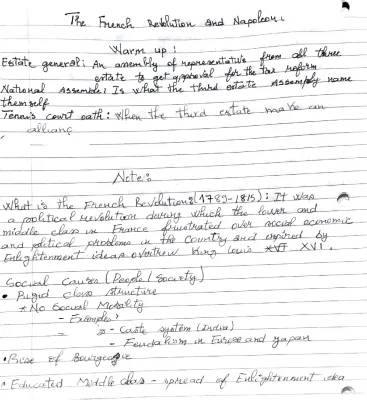 The French Revolution and Napoleon:
Warm up:
Estate general: An assembly of representatives from all three
estate to get approval for the tax reform
National Assemble: Is what the third estate Assembly name
themself
Tennis court oath: When the third estate make an
allianc
Note:
What is the French Revolution: (1789-1815): It was
a political revolution during which the lower and
middle class in France frustrated over social economic
and political problems in the country and inspired by
Enlightenment ideas overthrew King Louis XVI
Social Causes (People / Society)
• Rigid class structure
* No Social Mobility
- Examples:
- Caste system (India)
- Feudalism in Europe and Japan
• Rise of Bourgeoisie
• Educated Middle class - spread of Enlightenment idea